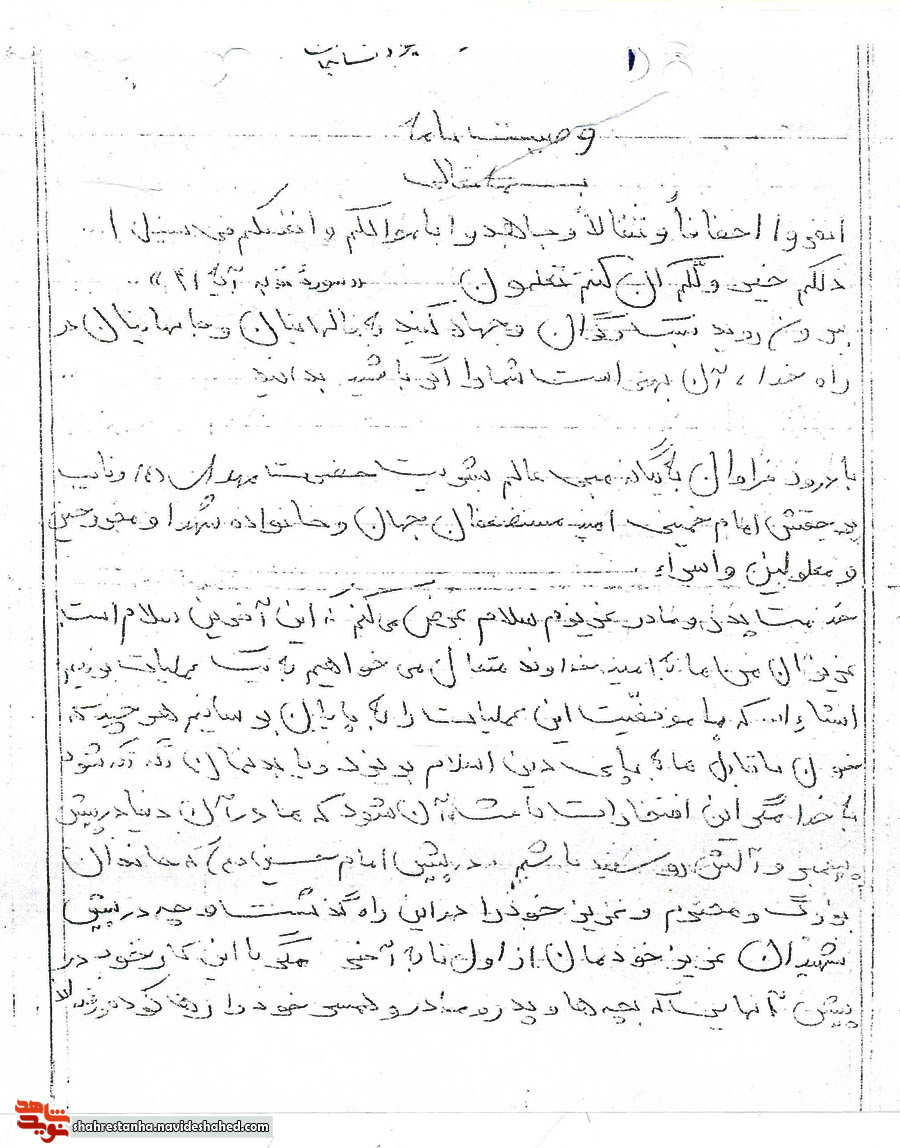 ۱
وصیت نامه
بسمه تعالی
انفروا اخفافاً و ثقالاً و جاهدوا باموالکم و انفسکم فی سبیل ا...
ذلکم خیر ولکم ان کنتم تعلمون «سوره توبه آیه ۴۱»
بیرون روید سبک و گران و جهاد کنید به مالهاتیان و جانهاتیان در
راه خدا، آن بهتر است شما را اگر باشید بدانید
با درود فراوان به یگانه منجی عالم بشریت حضرت مهدی (ع) و نایب
بر حقش امام خمینی امید مستضعفان جهان و خانواده شهدا و مجروحین
و معلولین و اسراء
خدمت پدر و مادر عزیزم سلام عرض می کنم که این آخرین سلام است
عزیزان من ما به امید خداوند متعال می خواهیم به یک عملیات برویم
انشاءا... که با موفقیت این عملیات را به پایان برسانیم هر چند که
خون ناقابل ما به پای دین اسلام بریزد و یا بدنمان تکه تکه شود
به خدا مگر این افتخارات باعث آن شود که ما در آن دنیا در پیش
پیغمبر و آلش رو سفید باشیم در پیش امام حسین (ع) که خاندان
بزرگ و محترم و عزیز خود را در این راه گذشت و چه در پیش
شهیدان عزیز خودمان از اول تا به آخر مگر با این کار خود در
پیش آنهایی که بچه ها و پدر و مادر و همسر خود را رها کرده
نوید شاهد
shahrestanha.navideshahed.com